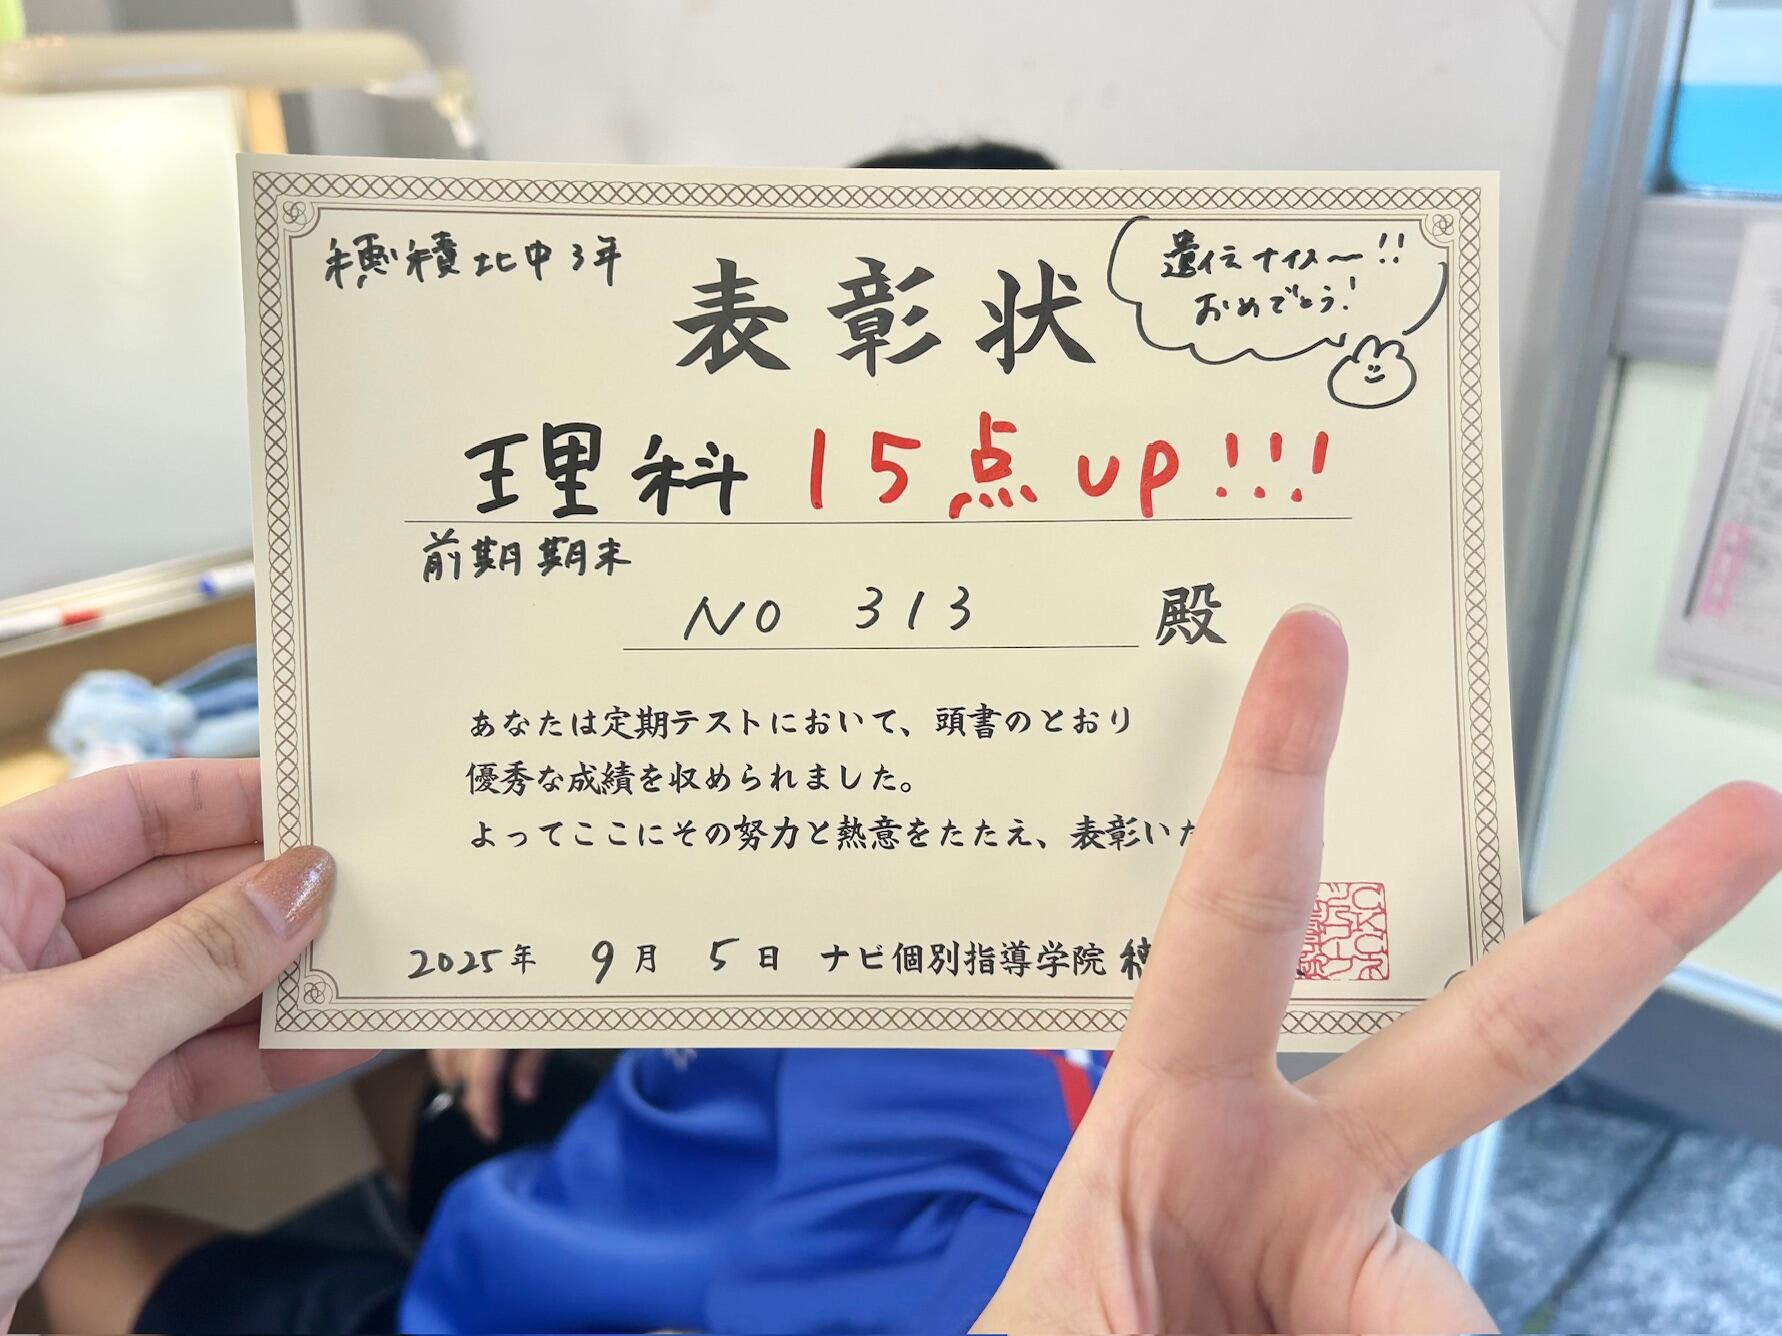 穂積北中3年
表彰状
遺伝ナイス〜!!
おめでとう!
理科 15点up!!!
前期期末
NO 313 殿
あなたは定期テストにおいて、頭書のとおり
優秀な成績を収められました。
よってここにその努力と熱意をたたえ、表彰いた
2025年 9月 5日 ナビ個別指導学院 穂